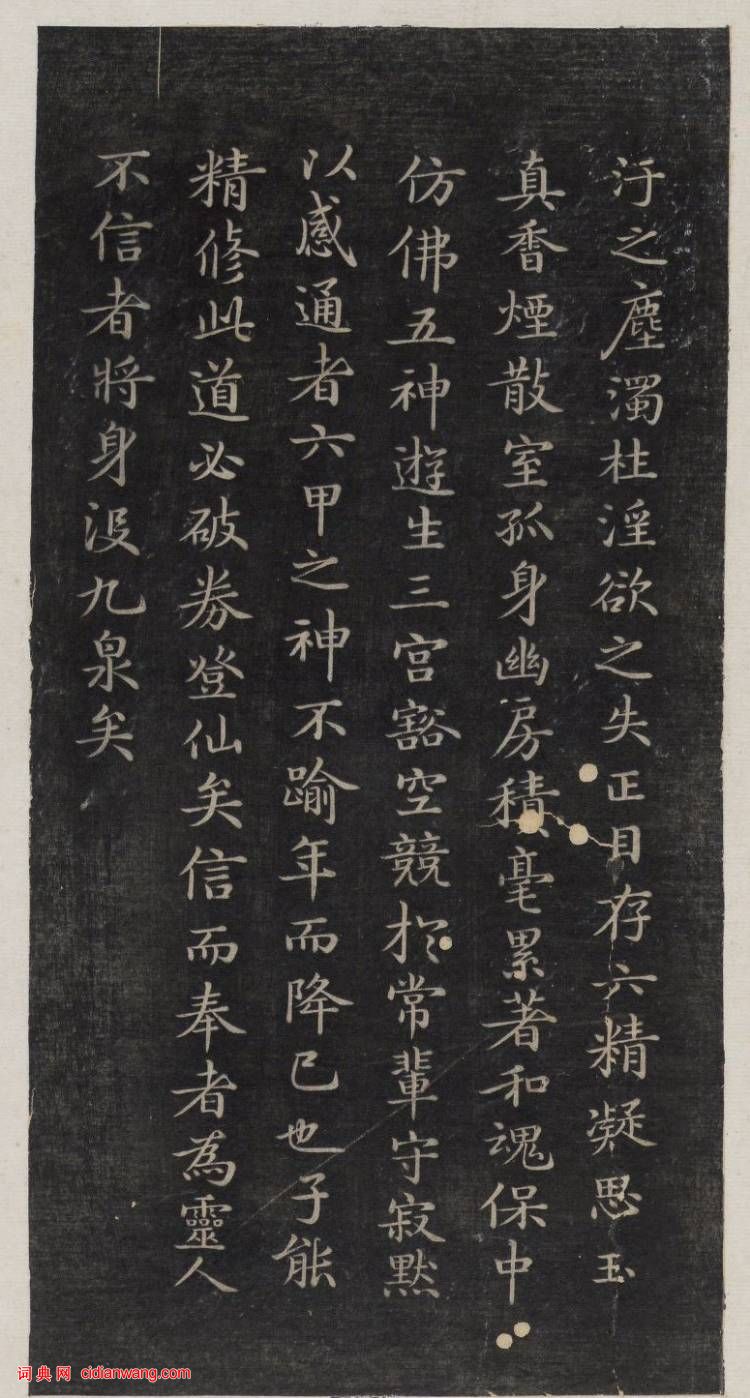 汙之塵濁杜淫欲之失正目存六精凝思玉
真香煙散室孤身幽房積毫累著和魂保中
仿佛五神遊生三宮豁空競於常輩守寂默
以感通者六甲之神不踰年而降已也子能
精修此道必破券登仙矣信而奉者為靈人
不信者將身沒九泉矣
词典网 cidianwang.com